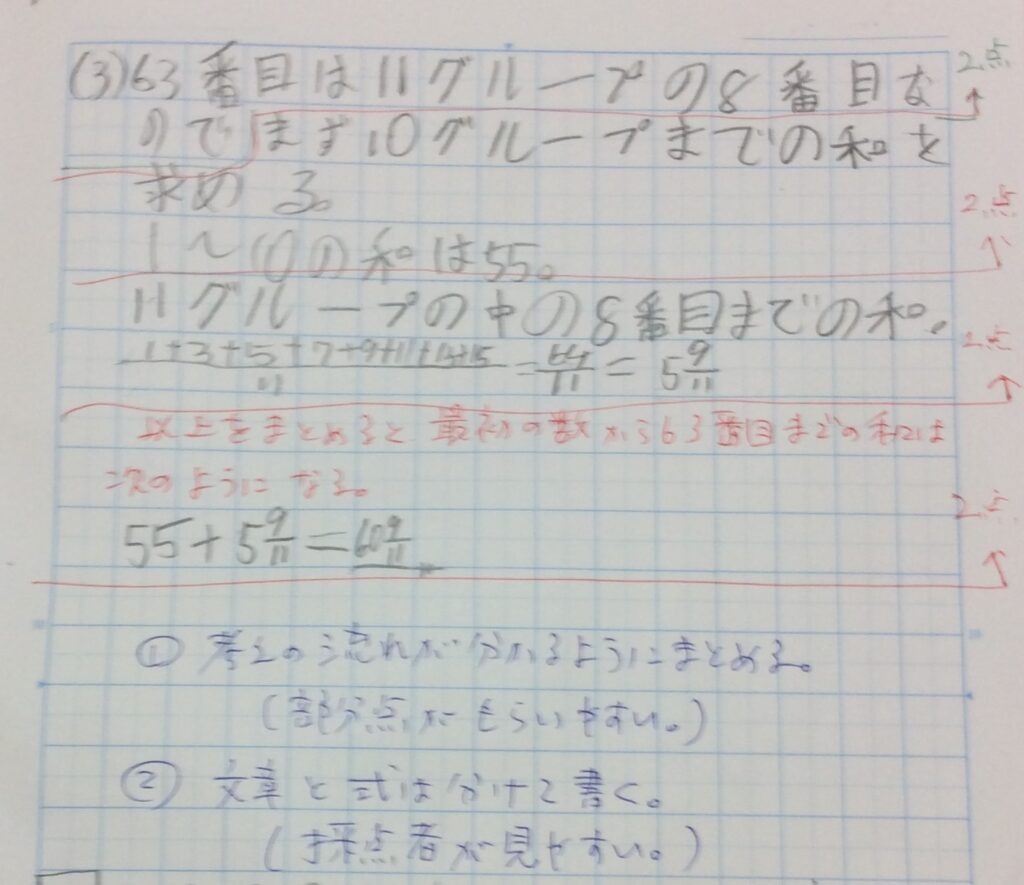 (3)63番目は11グループの8番目な
2点
↑
のでまず10グループまでの和を
求める。
2点
1〜10の和は55。
↑
11グループの中の8番目までの和。
1+3+5+7+9+11+13+15/11 = 64/11 = 5 9/11
2点
↑
以上をまとめると最初の数から63番目までの和は
次のようになる。
2点
55+5 9/11=60 9/11
↑
① 考えの流れが分かるようにまとめる。
(部分点がもらいやすい。)
② 文章と式は分けて書く。
(採点者が見やすい。)